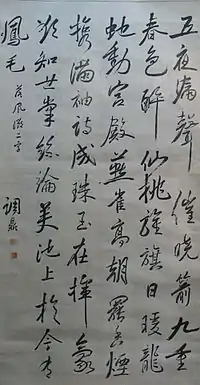 五夜漏聲催曉箭九重
春色醉仙桃旌旗日暖龍
虵動宮殿燕雀高朝罷香煙
携滿袖詩成珠玉在揮毫
欲知世掌絲綸美池上於今有
鳳毛 落風微二字 調鼎